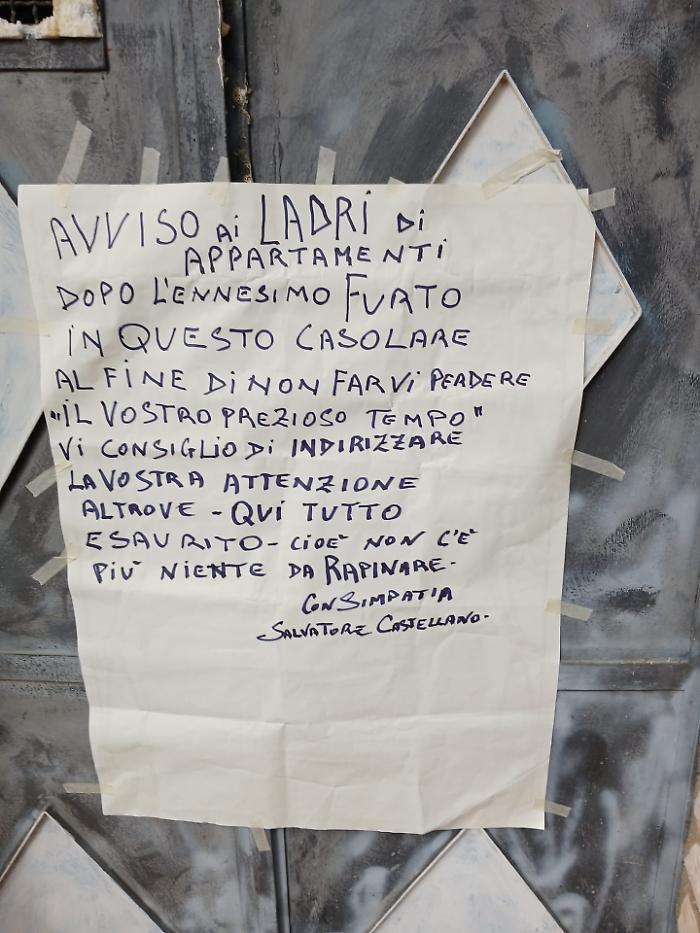 AVVISO Ai LADRi Di
APPARTAMENTi
DOPO L'ENNESIMO FURTO
iN QUESTO CASOLARE
AL FiNE Di NON FARVi PERDERE
"iL VOSTRO PREZIOSO TEMPO"
Vi CONSIGLIO Di INDIRIZZARE
LA VOSTRA ATTENZIONE
ALTROVE - QUi TUTTO
ESAURITO - CiOE' NON C'E'
PIU' NIENTE DA RAPINARE.
CON SIMPATIA
SALVATORE CASTELLANO.